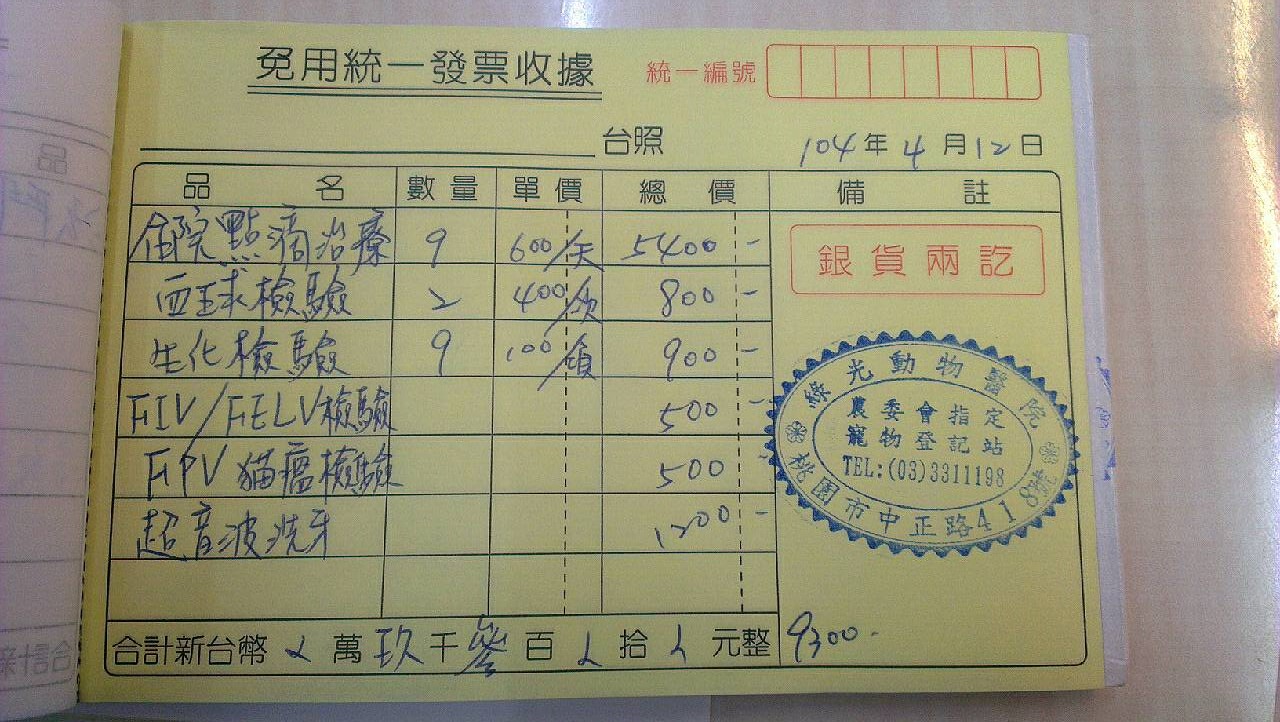 免用統一發票收據
統一編號
台照
104年4月12日
品名 數量 單價 總價 備註
住院點滴治療 9 600/天 5400-
血球檢驗 2 400/項 800-
生化檢驗 9 100/項 900-
FIV/FELV檢驗 500-
FPV貓瘟檢驗 500
超音波洗牙 1200-
銀貨兩訖
綠光動物醫院
農委會指定
寵物登記站
TEL:(03)3311198
桃園市中正路418號
合計新台幣 萬玖千參百 拾 元整 9300-